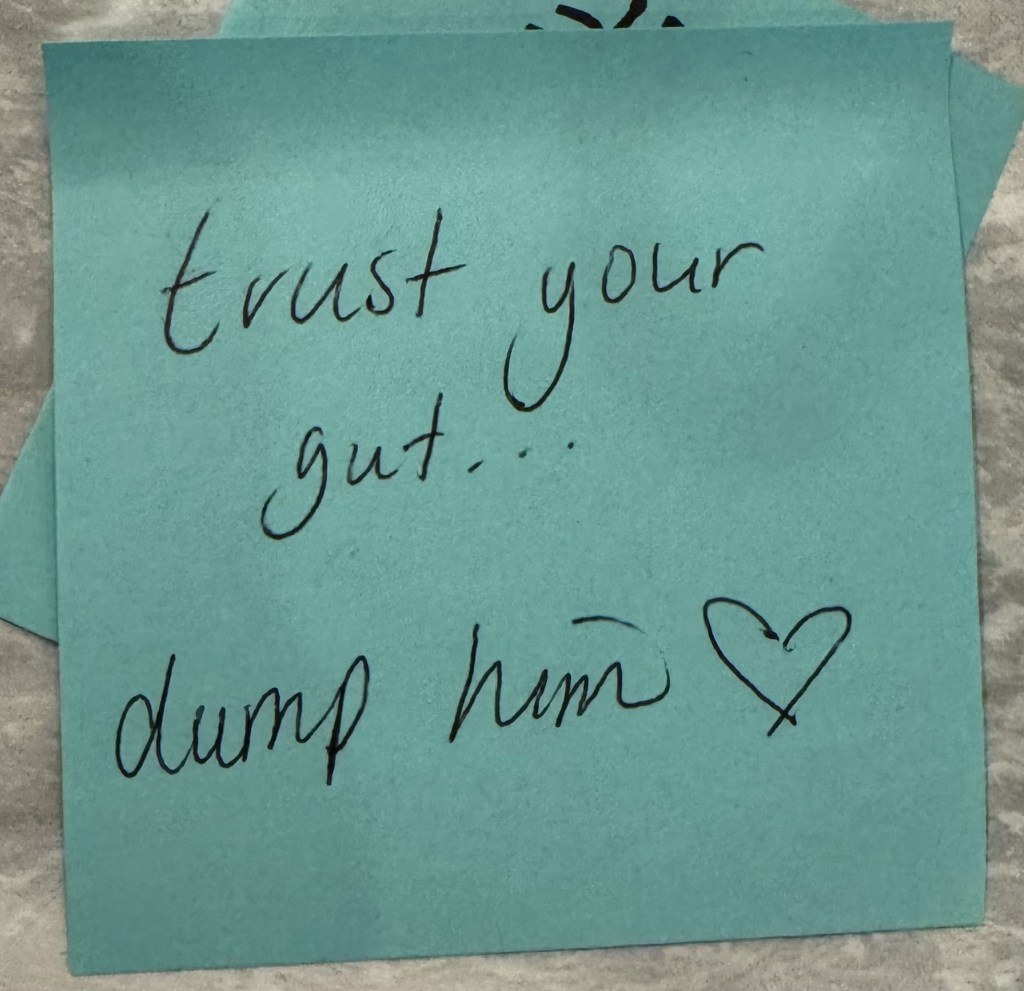 trust your
gut...
dump him ♡